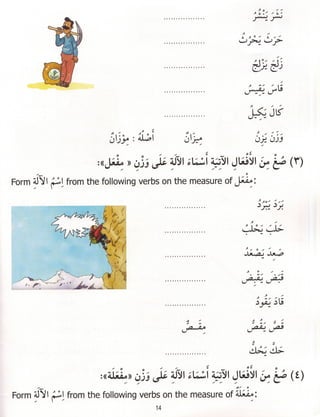 نَشَرَ يَنْشُرُ
جَرَحَ يَجْرَحُ
قَاسَ يَقِيسُ
كَالَ يَكِيلُ
وَزَنَ يَزِنُ مِيزَانٌ أَصْلُهُ : مِوْزَانٌ
(٣) صُغْ مِنَ الْأَفْعَالِ الْآتِيَةِ أَسْمَاءَ الْآلَةِ عَلَى وَزْنِ «مِفْعَلٍ»:
Form اِسْمُ الْآلَةِ from the following verbs on the measure of مِفْعَلٌ:
بَرَدَ يَبْرُدُ
حَلَبَ يَحْلُبُ
صَعِدَ يَصْعَدُ
قَادَ يَقُودُ
قَصَّ يَقُصُّ مِقَصٌّ
حَكَّ يَحُكُّ
(٤) صُغْ مِنَ الْأَفْعَالِ الْآتِيَةِ أَسْمَاءَ الْآلَةِ عَلَى وَزْنِ «مِفْعَلَةٍ»:
Form اِسْمُ الْآلَةِ from the following verbs on the measure of مِفْعَلَةٌ:
14